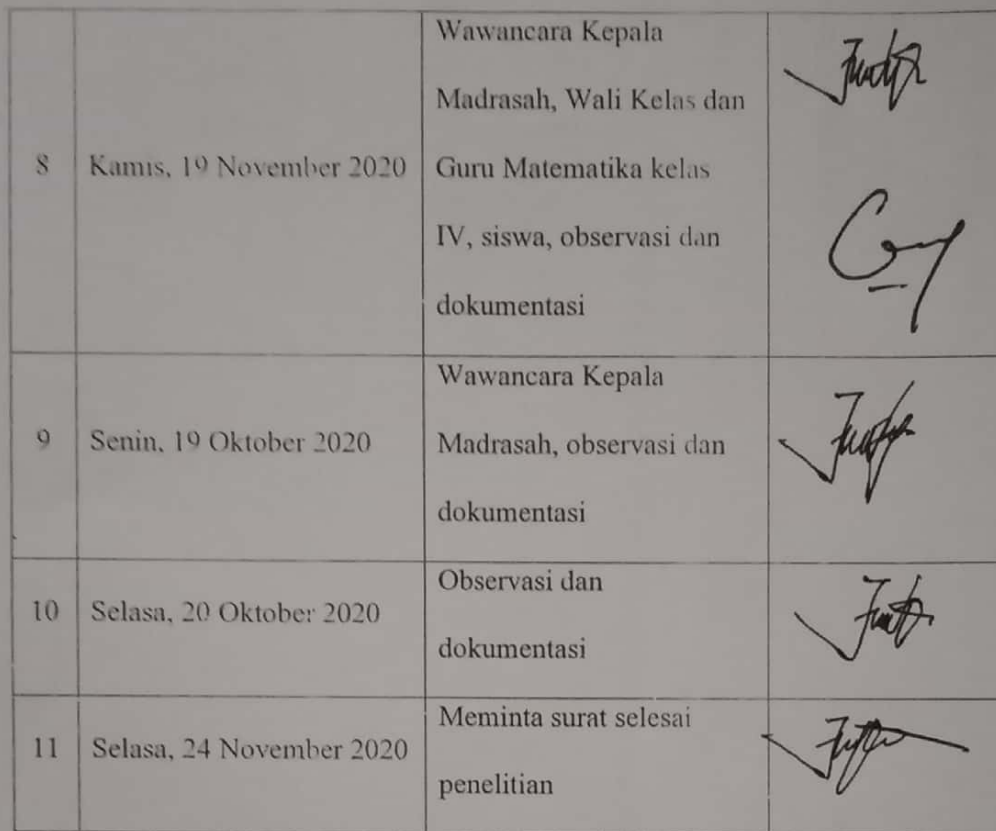 8
Kamis, 19 November 2020
Wawancara Kepala
Madrasah, Wali Kelas dan
Guru Matematika kelas
IV, siswa, observasi dan
dokumentasi
9
Senin, 19 Oktober 2020
Wawancara Kepala
Madrasah, observasi dan
dokumentasi
10
Selasa, 20 Oktober 2020
Observasi dan
dokumentasi
11
Selasa, 24 November 2020
Meminta surat selesai
penelitian